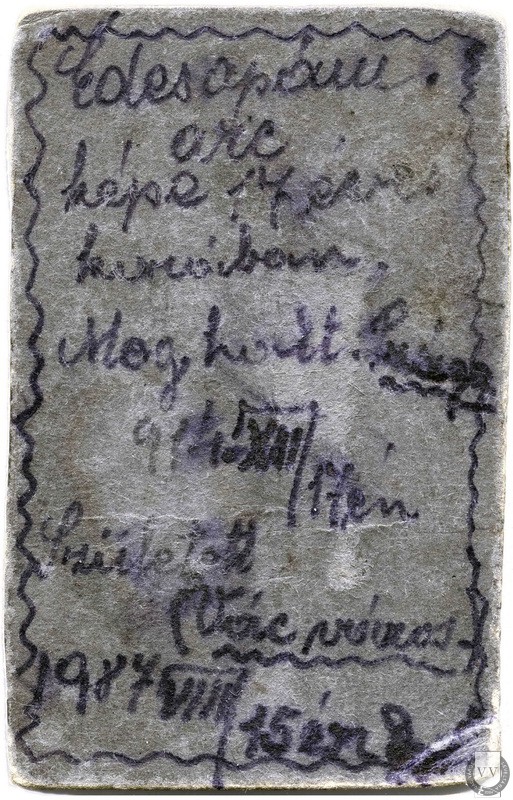 Édesapám
arc
képe 17 éves
korában,
Mog, halt.
914. XII/
17én
Született
(Vác város-
1987 VIII/
15én
VV